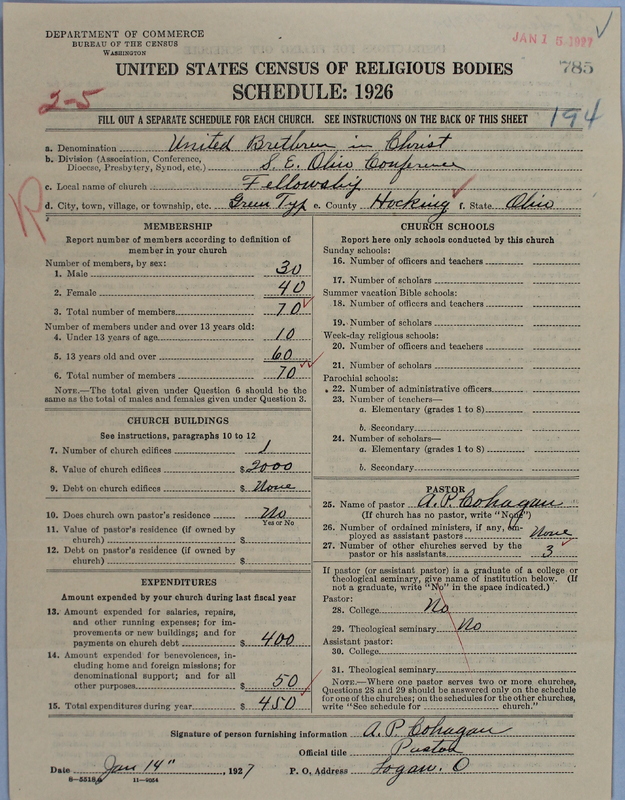 DEPARTMENT OF COMMERCE
BUREAU OF THE CENSUS
WASHINGTON
JAN 15 1927
785
UNITED STATES CENSUS OF RELIGIOUS BODIES
SCHEDULE: 1926
2-5
194
FILL OUT A SEPARATE SCHEDULE FOR EACH CHURCH. SEE INSTRUCTIONS ON THE BACK OF THIS SHEET
a. Denomination United Brethren in Christ
b. Division (Association, Conference, Diocese, Presbytery, Synod, etc.) S. E. Ohio Conference
c. Local name of church Fellowship
d. City, town, village, or township, etc. Green Typ e. County Hocking f. State Ohio
R
MEMBERSHIP
Report number of members according to definition of
member in your church
Number of members, by sex:
1. Male 30
2. Female 40
3. Total number of members 70
Number of members under and over 13 years old:
4. Under 13 years of age 10
5. 13 years old and over 60
6. Total number of members 70
NOTE.—The total given under Question 6 should be
same as the total of males and females given under Question 3.
CHURCH BUILDINGS
See instructions, paragraphs 10 to 12
7. Number of church edifices 1
8. Value of church edifices $ 2000
9. Debt on church edifices $ None
10. Does church own pastor's residence No
Yes or No
11. Value of pastor's residence (if owned by
church) $
12. Debt on pastor's residence (if owned by
church) $
EXPENDITURES
Amount expended by your church during last fiscal year
13. Amount expended for salaries, repairs,
and other running expenses; for im-
provements or new buildings; and for
payments on church debt $ 400
14. Amount expended for benevolences, in-
cluding home and foreign missions; for
denominational support; and for all
other purposes $ 50
15. Total expenditures during year $ 450
CHURCH SCHOOLS
Report here only schools conducted by this church
Sunday schools:
16. Number of officers and teachers
17. Number of scholars
Summer vacation Bible schools:
18. Number of officers and teachers
19. Number of scholars
Week-day religious schools:
20. Number of officers and teachers
21. Number of scholars
Parochial schools:
22. Number of administrative officers
23. Number of teachers—
a. Elementary (grades 1 to 8)
b. Secondary
24. Number of scholars—
a. Elementary (grades 1 to 8)
b. Secondary
PASTOR
25. Name of pastor A. P. Cohagan
(If church has no pastor, write "None")
26. Number of ordained ministers, if any, em-
ployed as assistant pastors None
27. Number of other churches served by the
pastor or his assistants 3
If pastor (or assistant pastor) is a graduate of a college or
theological seminary, give name of institution below. (If
not a graduate, write "No" in the space indicated.)
Pastor:
28. College No
29. Theological seminary No
Assistant pastor:
30. College
31. Theological seminary
NOTE.—Where one pastor serves two or more churches,
Questions 28 and 29 should be answered only on the schedule
for one of the churches; on the schedules for the other churches,
write "See schedule for church."
Signature of person furnishing information A. P. Cohagan
Official title Pastor
Date Jan 14", 1927 P. O. Address Logan. O
8-5518a 11-9054